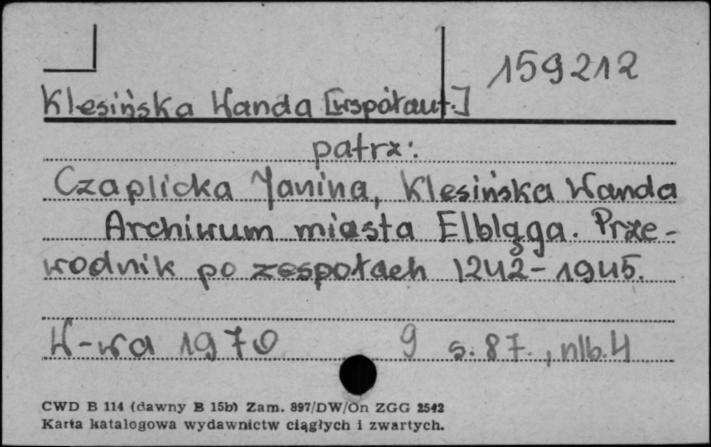 159212
Klesińska Wanda [współaut.]
patrz:
Czaplicka Janina, Klesińska Wanda
Archiwum miasta Elbląga. Prze-
wodnik po zespołach 1242-1945.
W-wa 1970 9 s. 87., nlb. 4
CWD B 114 (dawny B 15b) Zam. 897/DW/On ZGG 2542
Karta katalogowa wydawnictw ciągłych i zwartych.